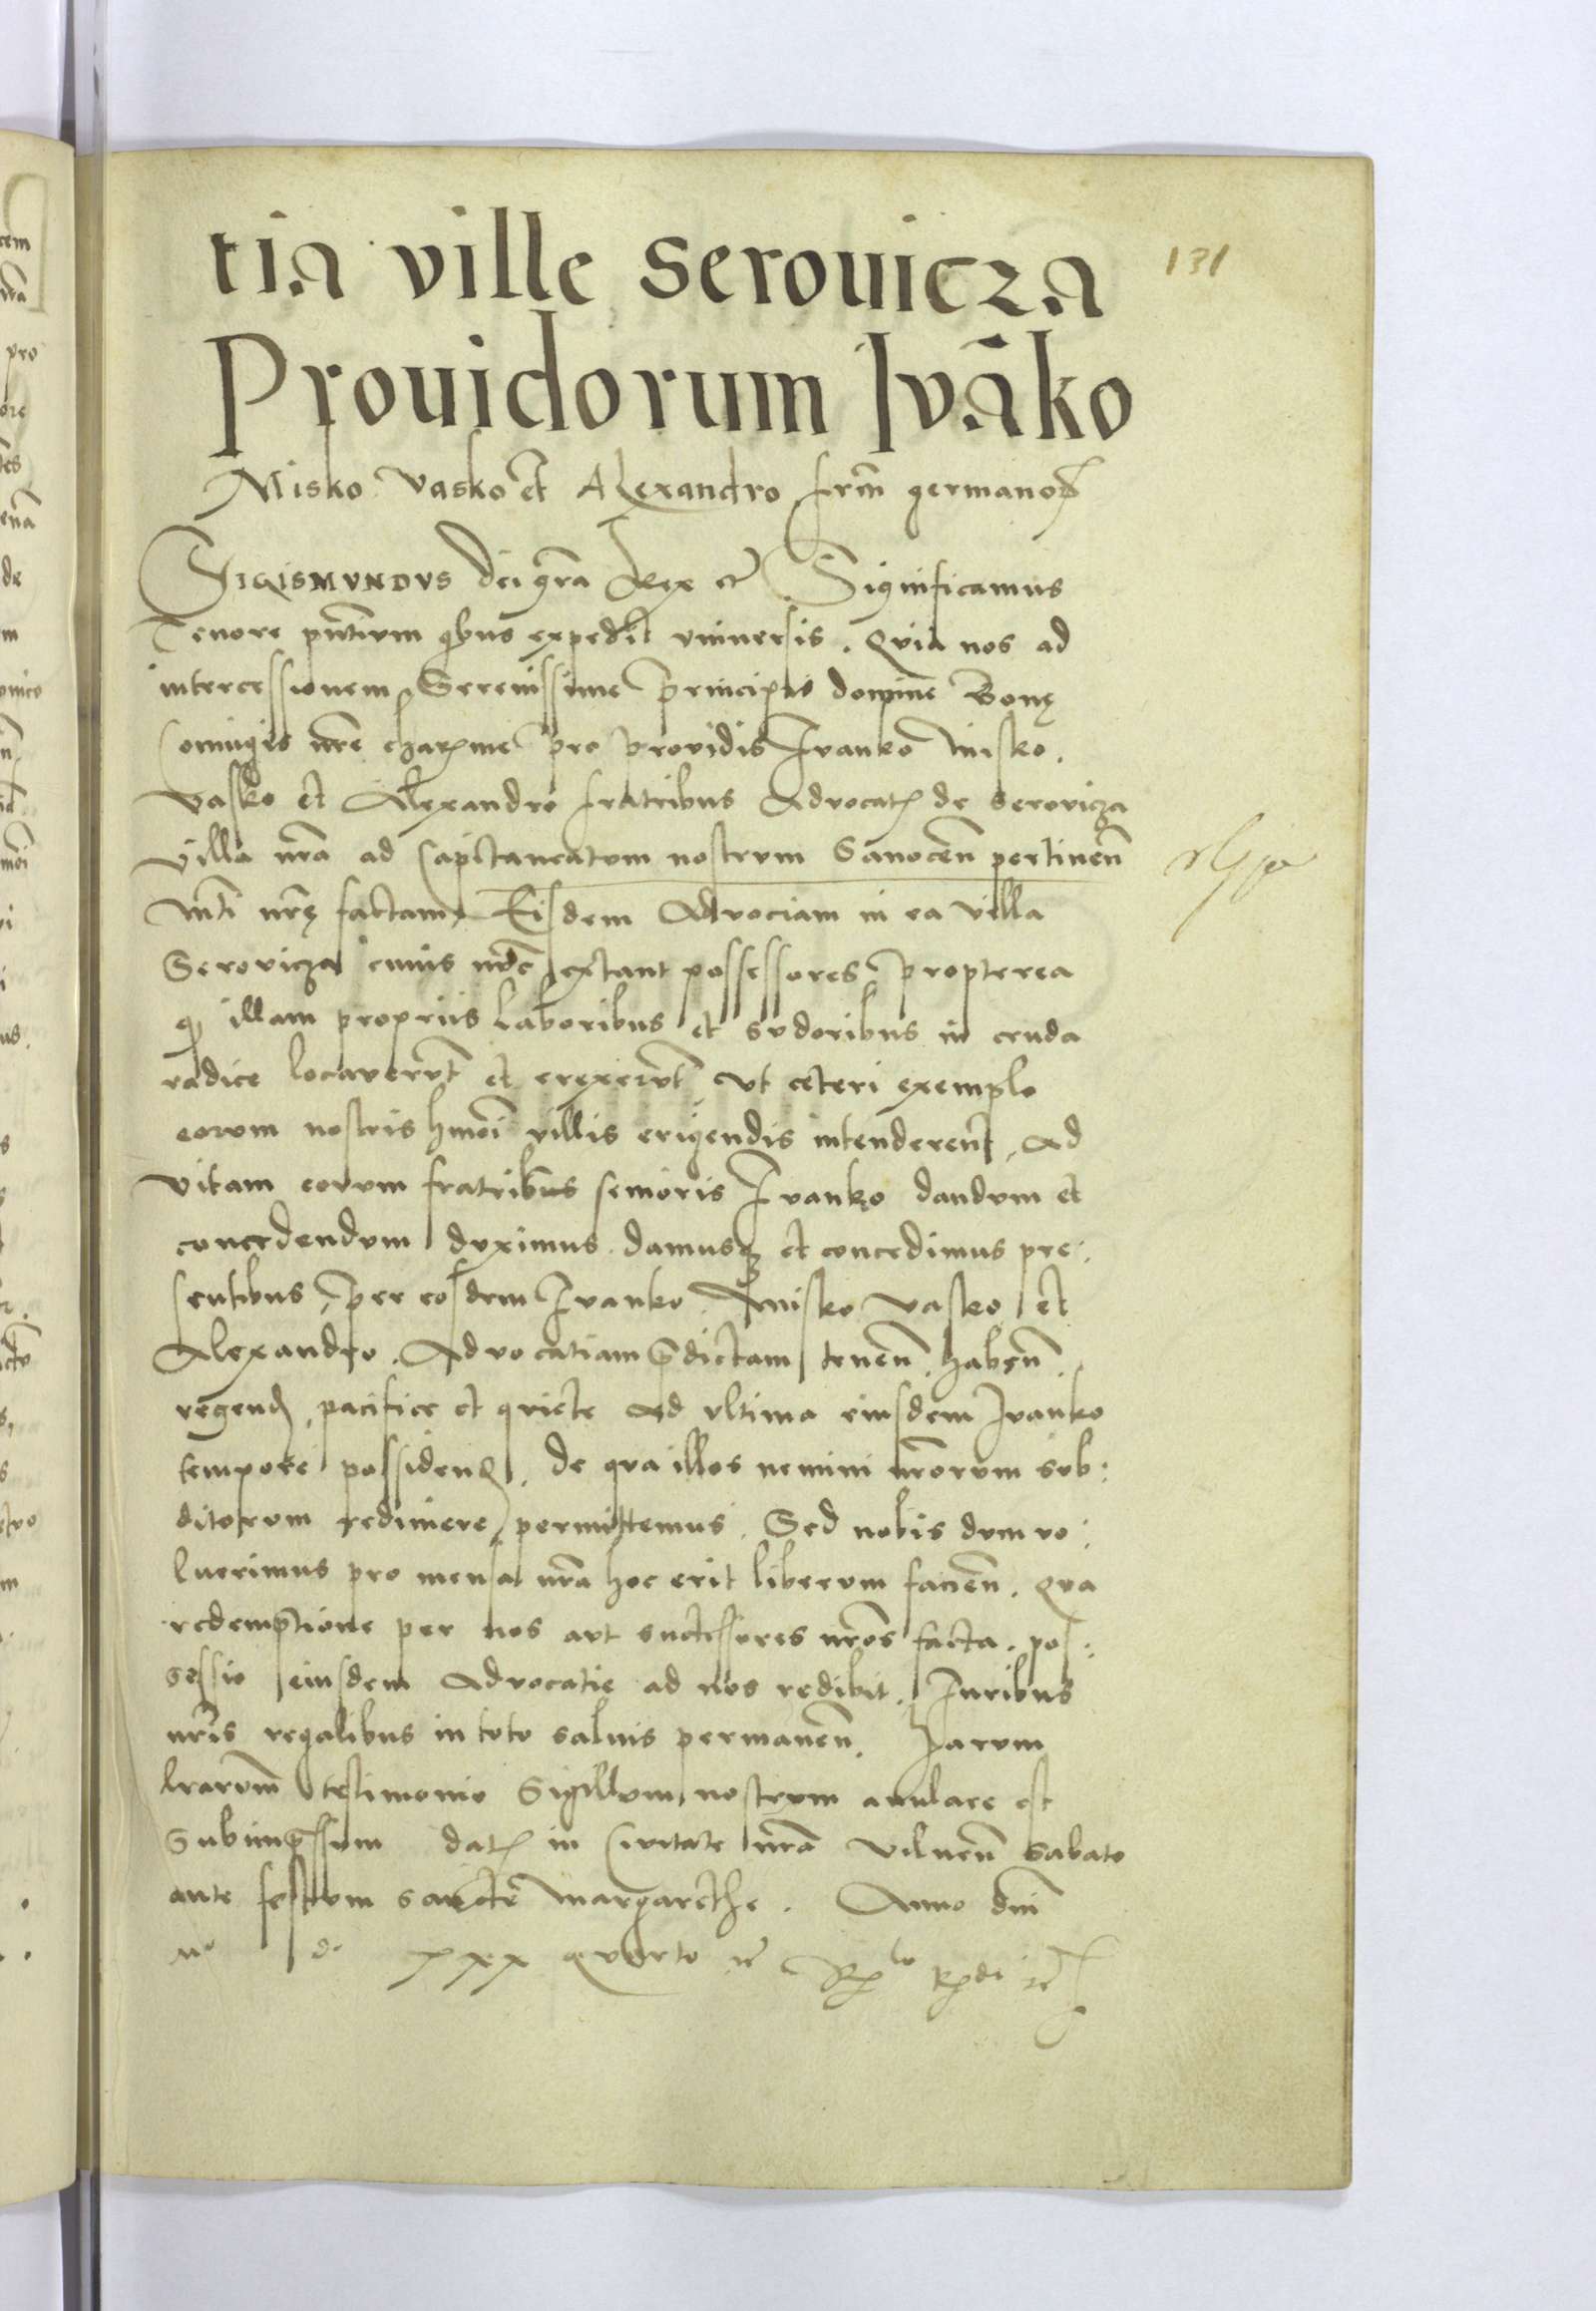 tia ville Serovicza
131
Providorum Ivāko
Misko Vasko et Alexandro frm̄ germanoꝝ
SIGISMVNDVS dei gr̄a Rex etc̄ Significamus
Tenore pn̄tivm qbus expedit vniversis. Qvia nos ad
intercessionem Serenissime principis domine Bonę
Coniugis nr̄e charme pro providis Ivanko Misko.
Vasko et Alexandro fratribus Advocatis de Serovicza
Villa nr̄a ad Capitaneatvm nostrvm Sanocen̄ pertinen̄
Mti nr̄ę factam Eisdem Advociam in ea villa
Serovicza cuius nvc̄ extant possessores propterea
qꝫ illam propriis laboribus et svdoribus in cruda
radice locavervt̄ et erexervt̄ vt ceteri exemplo
eorvm nostris hmōi villis erigendis intenderent, Ad
vitam eorvm fratribus senioris Ivanko dandvm et
concedendvm dvximus damusqꝫ et concedimus pre:
sentibus, per eosdem Ivanko Misko Vasko et
Alexandro. Advocatiam p̄dictam tenen̄ haben̄
regend̄ pacifice et qviete ad vltima eiusdem Ivanko
tempore possidend̄. de qva illos nemini nr̄orvm svb:
ditorvm redimere permittemus. Sed nobis dvm vo:
luerimus pro mensa nr̄a hoc erit libervm facien̄. Qva
redemptione per nos avt successores nr̄os facta. pos:
sessio eiusdem Advocatie ad nos redibit. Iuribus
nr̄is regalibus in toto salvis permanen̄. Harvm
lrarvm̄ testimonio Sigillvm nostrvm anulare est
Subimp̄ssum dat in Civitate nr̄a Vilnen̄ Sabato
ante festvm sancte Margarethe. Anno dnī
Mº dº xxx qvarto